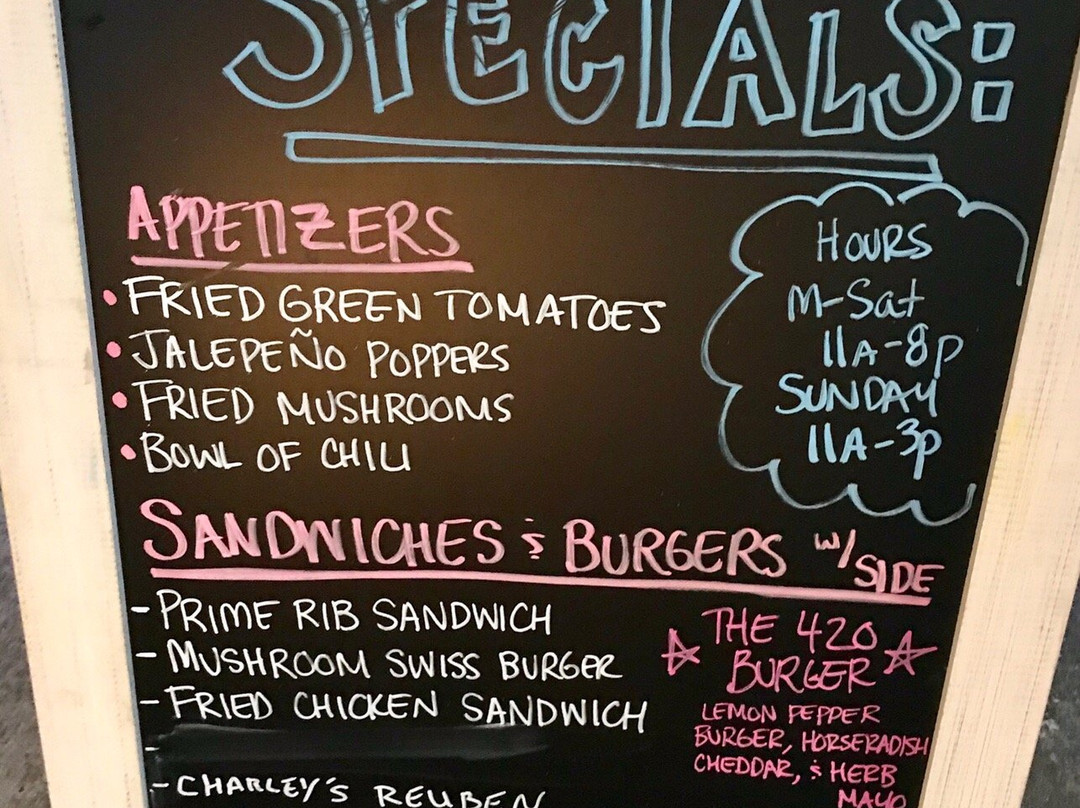 SPECIALS:
APPETIZERS
• FRIED GREEN TOMATOES
• JALEPEÑO POPPERS
• FRIED MUSHROOMS
• BOWL OF CHILI
HOURS
M-Sat
11A-8p
SUNDAY
11A-3p
SANDWICHES & BURGERS w/ SIDE
- PRIME RIB SANDWICH
- MUSHROOM SWISS BURGER
- FRIED CHICKEN SANDWICH
-
- CHARLEY'S REUBEN
THE 420
BURGER
LEMON PEPPER
BURGER, HORSERADISH
CHEDDAR, & HERB
MAYO